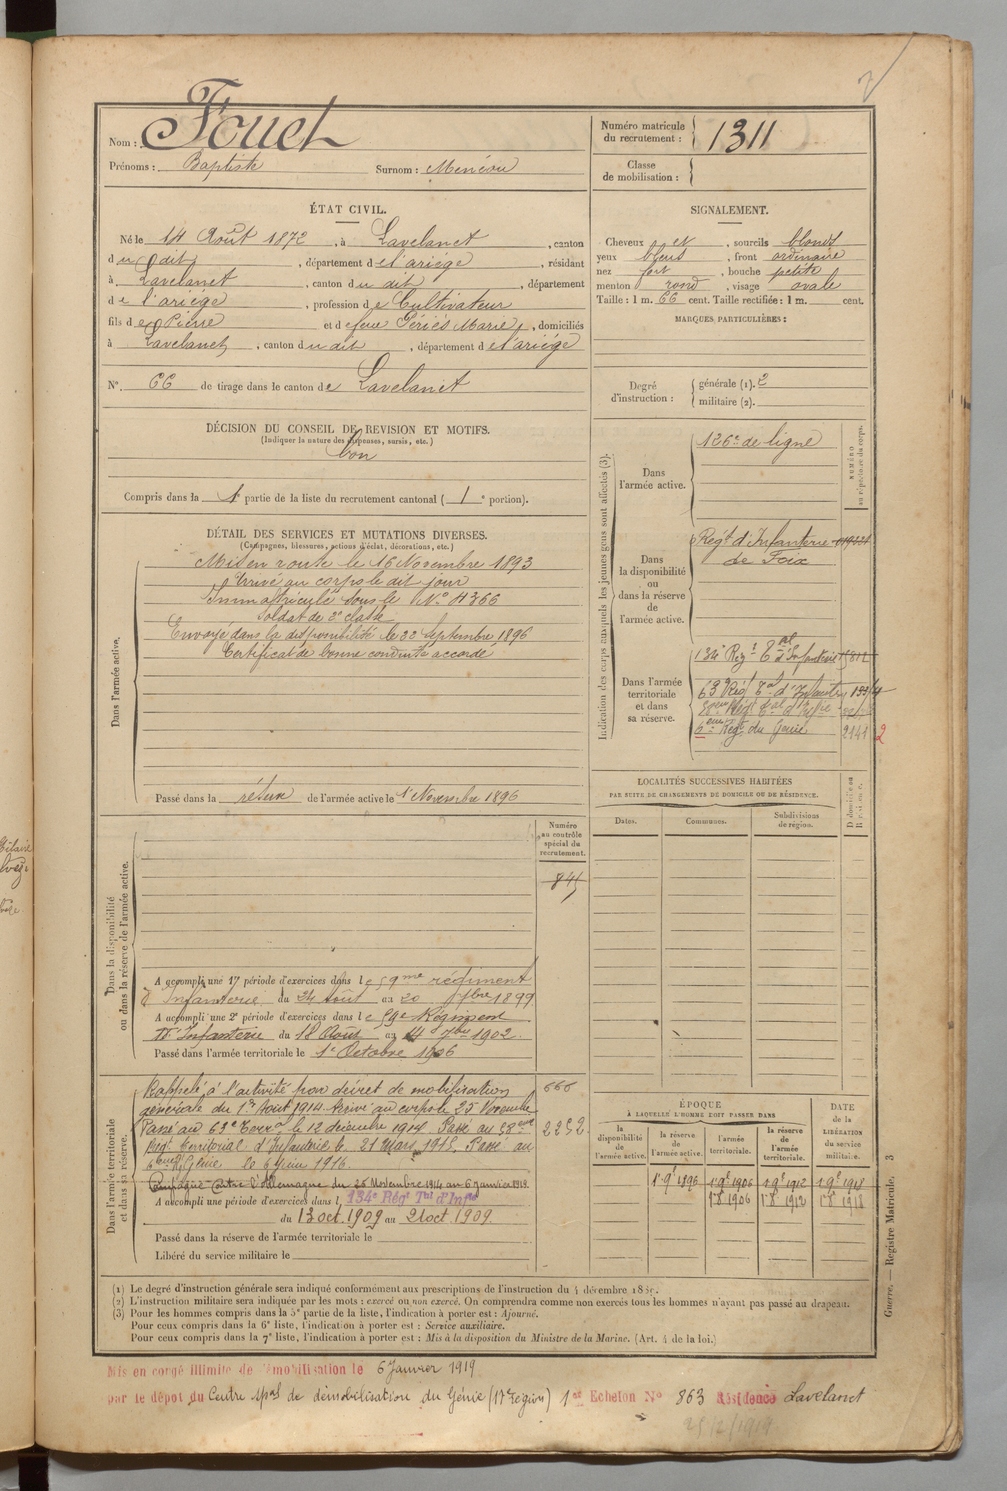 Nom : Fouet
Prénoms : Baptiste Surnom : Menéou
Numéro matricule du recrutement : 1311
Classe de mobilisation :
ÉTAT CIVIL.
Né le 14 Août 1872, à Lavelanet, canton
du dit, département de l'ariége, résidant
à Lavelanet, canton du dit, département
de l'ariége, profession de Cultivateur
fils de Pierre et de feue Périés Marie, domiciliés
à Lavelanet, canton du dit, département de l'ariége
N° 66 de tirage dans le canton de Lavelanet
SIGNALEMENT.
Cheveux et, sourcils blonds
yeux bleus, front ordinaire
nez fort, bouche petite
menton rond, visage ovale
Taille : 1 m. 66 cent. Taille rectifiée : 1 m. cent.
MARQUES PARTICULIÈRES :
Degré d'instruction : générale (1). 2
militaire (2).
DÉCISION DU CONSEIL DE REVISION ET MOTIFS.
(Indiquer la nature des dispenses, sursis, etc.)
bon
Compris dans la 1e partie de la liste du recrutement cantonal ( 1e portion).
DÉTAIL DES SERVICES ET MUTATIONS DIVERSES.
(Campagnes, blessures, actions d'éclat, décorations, etc.)
Dans l'armée active.
Mis en route le 16 Novembre 1893
Arrivé au corps le dit jour
Immatriculé sous le N° 4366
Soldat de 2e classe
Envoyé dans la disponibilité le 22 Septembre 1896
Certificat de bonne conduite accordé
Passé dans la réserve de l'armée active le 1 Novembre 1896
Indication des corps auxquels les jeunes gens sont affectés (3).
NUMÉRO au répertoire du corps.
Dans l'armée active.
126e de ligne
Dans la disponibilité ou dans la réserve de l'armée active.
Regt d'Infanterie
de Foix
Dans l'armée territoriale et dans sa réserve.
134e Regt Tal d'Infanterie
63e Rég Tal d'Infantie
6eme Régt du Génie 2141 2
LOCALITÉS SUCCESSIVES HABITÉES
PAR SUITE DE CHANGEMENTS DE DOMICILE OU DE RÉSIDENCE.
Dates. Communes. Subdivisions de région. D domicile ou R résidence.
Dans la disponibilité ou dans la réserve de l'armée active.
Numéro au contrôle spécial du recrutement.
845
A accompli une 1re période d'exercices dans le 59me régiment
d'Infanterie du 24 août au 20 7bre 1899
A accompli une 2e période d'exercices dans le 59e Régiment
d'Infanterie du 18 Août au 14 7bre 1902.
Passé dans l'armée territoriale le 1e Octobre 1906
Dans l'armée territoriale et dans sa réserve.
Rappelé à l'activité par décret de mobilisation 666
générale du 1er Août 1914. Arrivé au corps le 25 Novembre
Passé au 63e Terral le 12 décembre 1914. Passé au 58eme 2252
Régt Territorial d'Infanterie le 21 Mars 1915. Passé au
6eme Rt Génie le 6 juin 1916.
Campagne contre l'Allemagne du 25 Novembre 1914 au 6 janvier 1919.
A accompli une période d'exercices dans l 134e Rég Tal d'Infie
du 13 oct. 1909 au 21 oct. 1909.
Passé dans la réserve de l'armée territoriale le
Libéré du service militaire le
ÉPOQUE
À LAQUELLE L'HOMME DOIT PASSER DANS
DATE DE LA LIBÉRATION du service militaire.
la disponibilité de l'armée active. la réserve de l'armée active. l'armée territoriale. la réserve de l'armée territoriale.
1 9 1896 1 9 1906 1 9 1912 1 9 1918
1 8 1906 1 8 1912 1 8 1918
(1) Le degré d'instruction générale sera indiqué conformément aux prescriptions de l'instruction du 4 décembre 1889.
(2) L'instruction militaire sera indiquée par les mots : exercé ou non exercé. On comprendra comme non exercés tous les hommes n'ayant pas passé au drapeau.
(3) Pour les hommes compris dans la 5e partie de la liste, l'indication à porter est : Ajourné.
Pour ceux compris dans la 6e liste, l'indication à porter est : Service auxiliaire.
Pour ceux compris dans la 7e liste, l'indication à porter est : Mis à la disposition du Ministre de la Marine. (Art. 4 de la loi.)
Guerre. — Registre Matricule. 3
Mis en congé illimité de démobilisation le 6 Janvier 1919
par le dépôt du Centre spal de démobilisation du Génie (17e région) 1er Echelon N° 863 Résidence Lavelanet